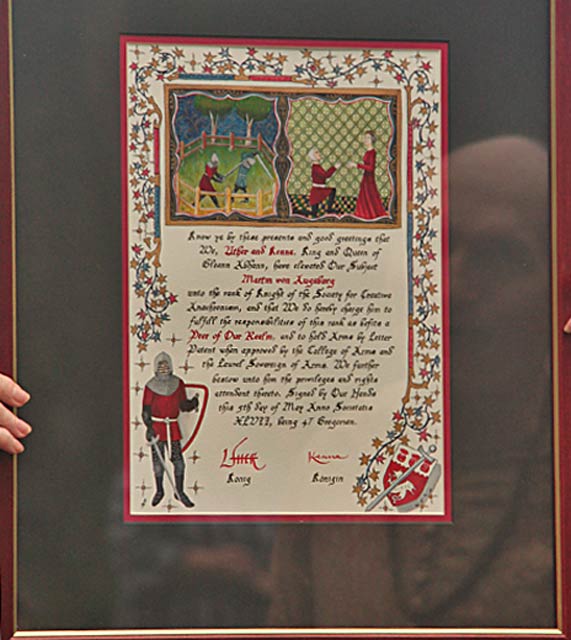 Know ye by these presents and good greetings that
We, Uther and Kenna, King and Queen of
Gleann Abhann, have elevated Our Subject
Martin von Augsburg
unto the rank of Knight of the Society for Creative
Anachronism, and that We do hereby charge him to
fulfill the responsibilities of this rank as befits a
Peer of Our Realm, and to hold Arms by Letter
Patent when approved by the College of Arms and
the Laurel Sovereign of Arms. We further
bestow unto him the privileges and rights
attendant thereto. Signed by Our Hands
this 5th day of May Anno Societatis
XLVII, being 47 Gregorian.
Uther Kenna
Konig Konigin